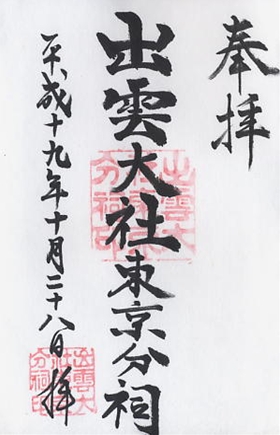 奉拝
出雲大社東京分祠
平成十九年十月二十八日 拝
出雲大
社東京
分祠印
出雲大
社
分祠印